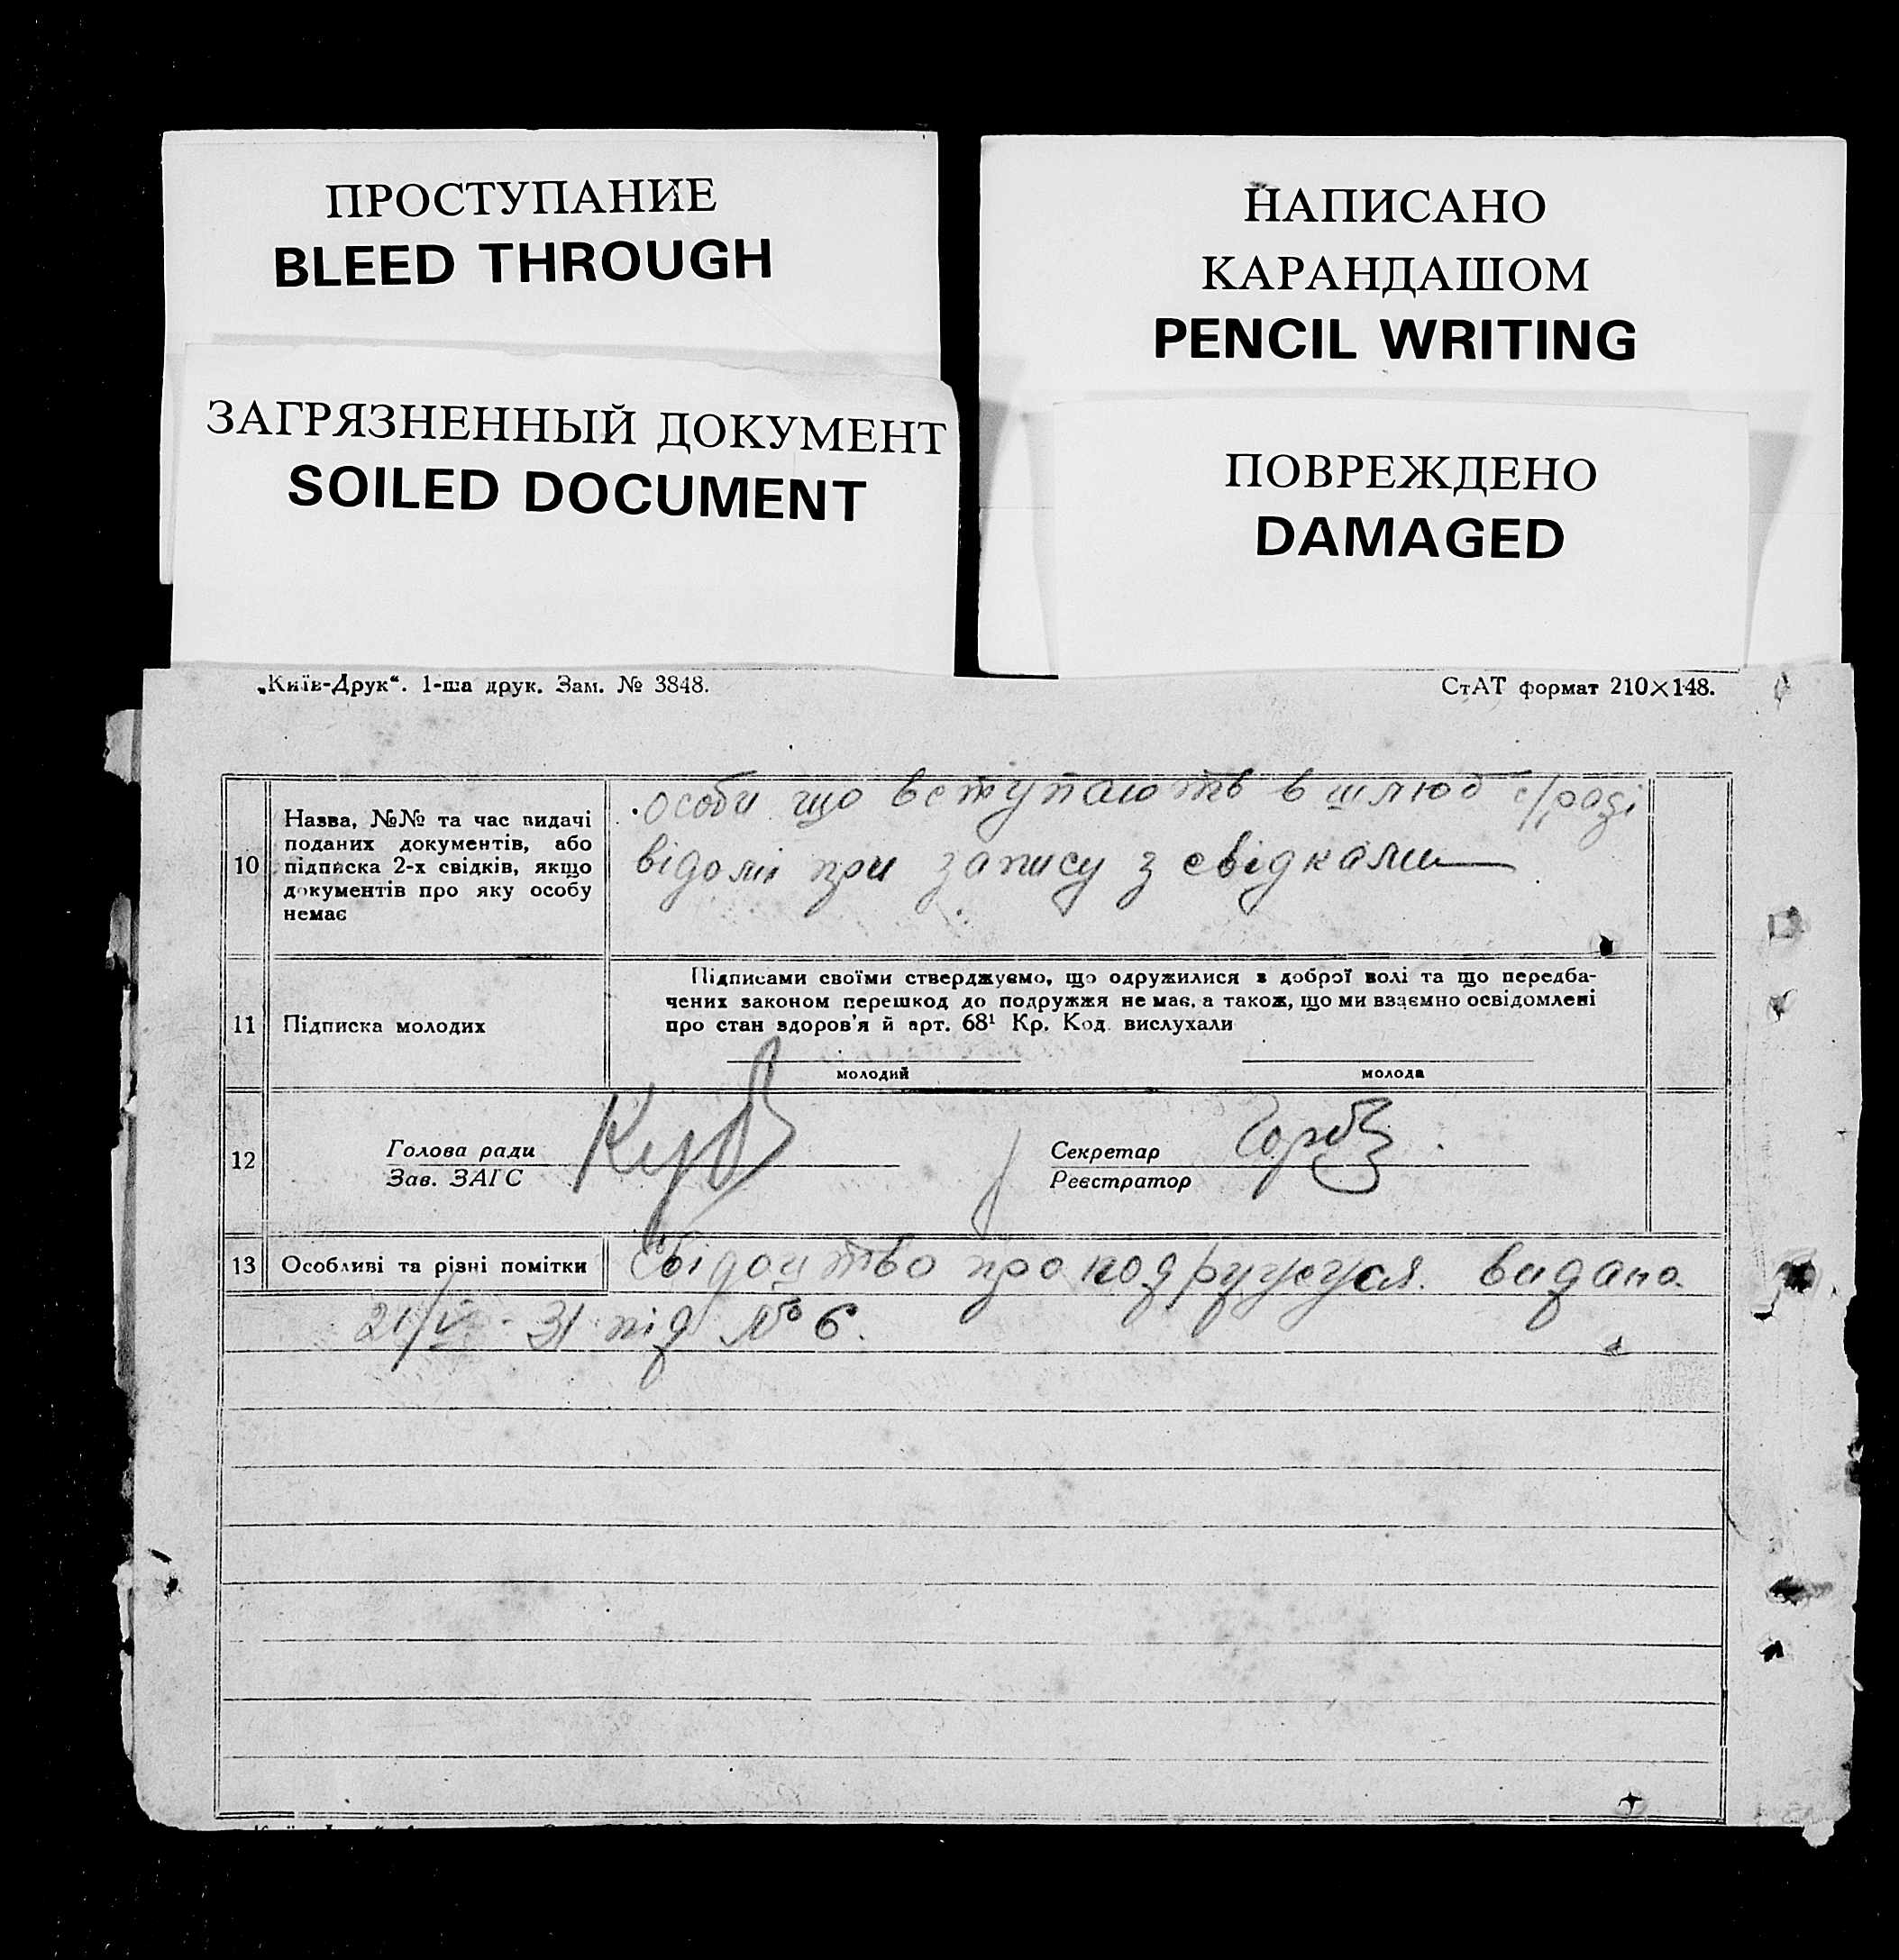 ПРОСТУПАНИЕ
BLEED THROUGH
НАПИСАНО
КАРАНДАШОМ
PENCIL WRITING
ЗАГРЯЗНЕННЫЙ ДОКУМЕНТ
SOILED DOCUMENT
ПОВРЕЖДЕНО
DAMAGED
„Київ-Друк“. 1-ша друк. Зам. № 3848.
СтАТ формат 210×148.
10
Назва, №№ та час видачі
поданих документів, або
підписка 2-х свідків, якщо
документів про яку особу
немає
особи що вступають в шлюб с/раді
відомі при запису з свідками
11
Підписка молодих
Підписами своїми стверджуємо, що одружилися з доброї волі та що передба-
чених законом перешкод до подружжя немає, а також, що ми взаємно освідомлені
про стан здоров'я й арт. 68¹ Кр. Код. вислухали
молодий
молода
12
Голова ради
Зав. ЗАГС
Секретар
Реєстратор
13
Особливі та різні помітки
про видано
21/V - 31 під № 6.